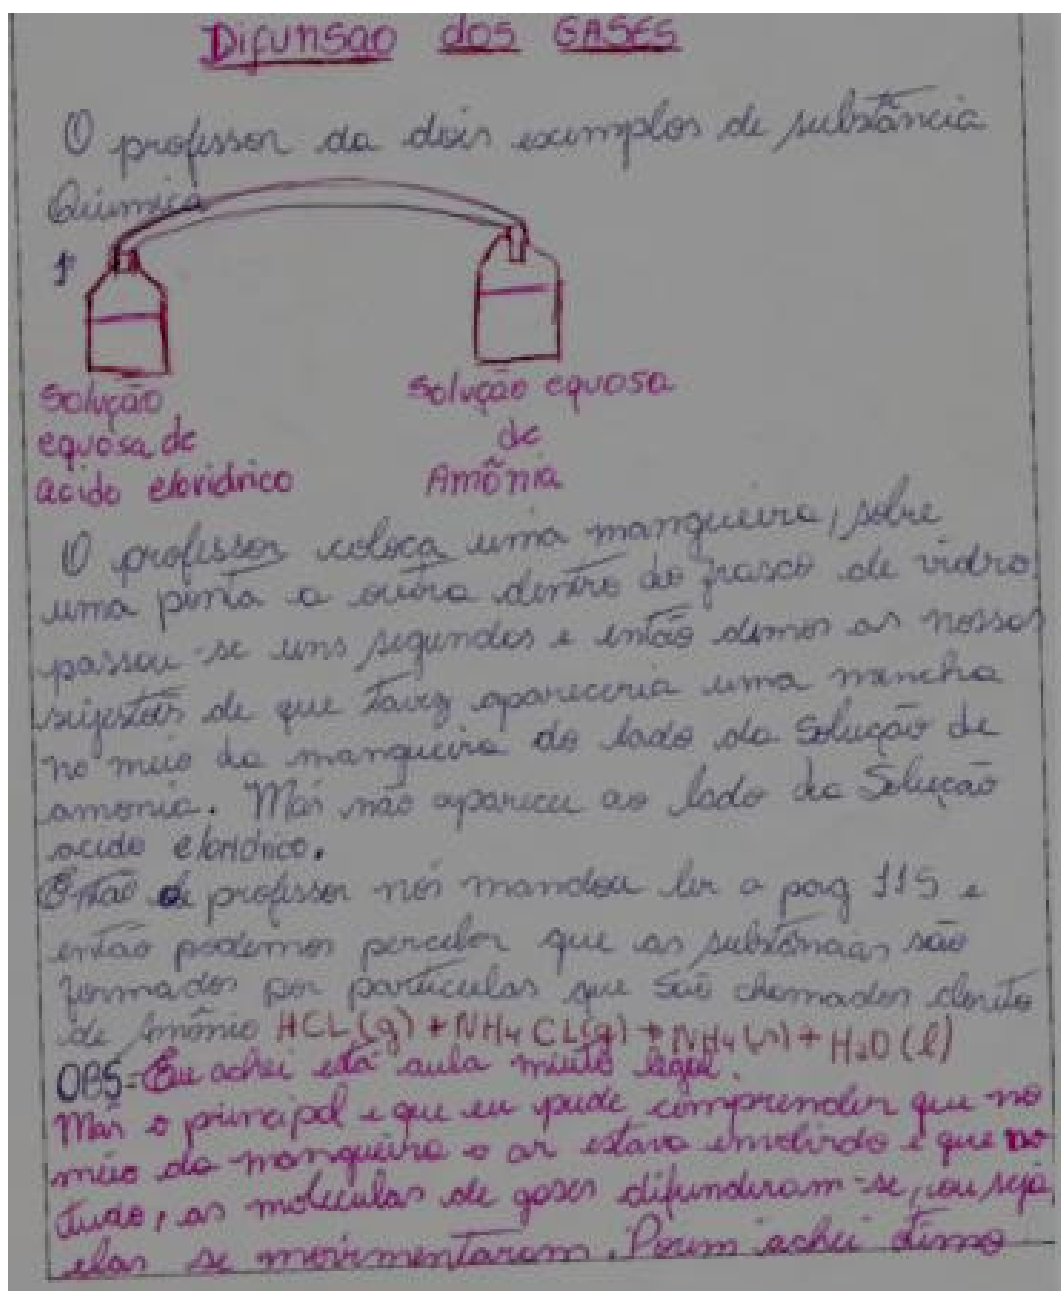 Difunsao dos GASES
O professor da dois exemplos de substância
Química
1º
Solução
equosa de
acido eloridrico
Solução equosa
de
Amônia
O professor coloca uma mangueira, sobre
uma ponta a outra dentro do frasco de vidro
passou-se uns segundos e então demos as nossas
sujestões de que tavez apareceria uma mancha
no meio da mangueira do lado da Solução de
amonia. Mas não apareceu ao lado da Solução
acido eloridrico.
Então o professor nós mandou ler a pag 115 e
então podemos perceber que as substâncias são
formados por particulas que são chamados cloreto
de Amônio HCL(g) + NH4 CL(g) + NH4(s) + H2O(l)
OBS= Eu achei está aula muito legal.
Mas o principal e que eu pude comprender que no
meio da mangueira o ar estava envolvido e que no
tudo, as moleculas de gases difundiram-se, ou seja
elas se movimentaram. Porem achei otimo